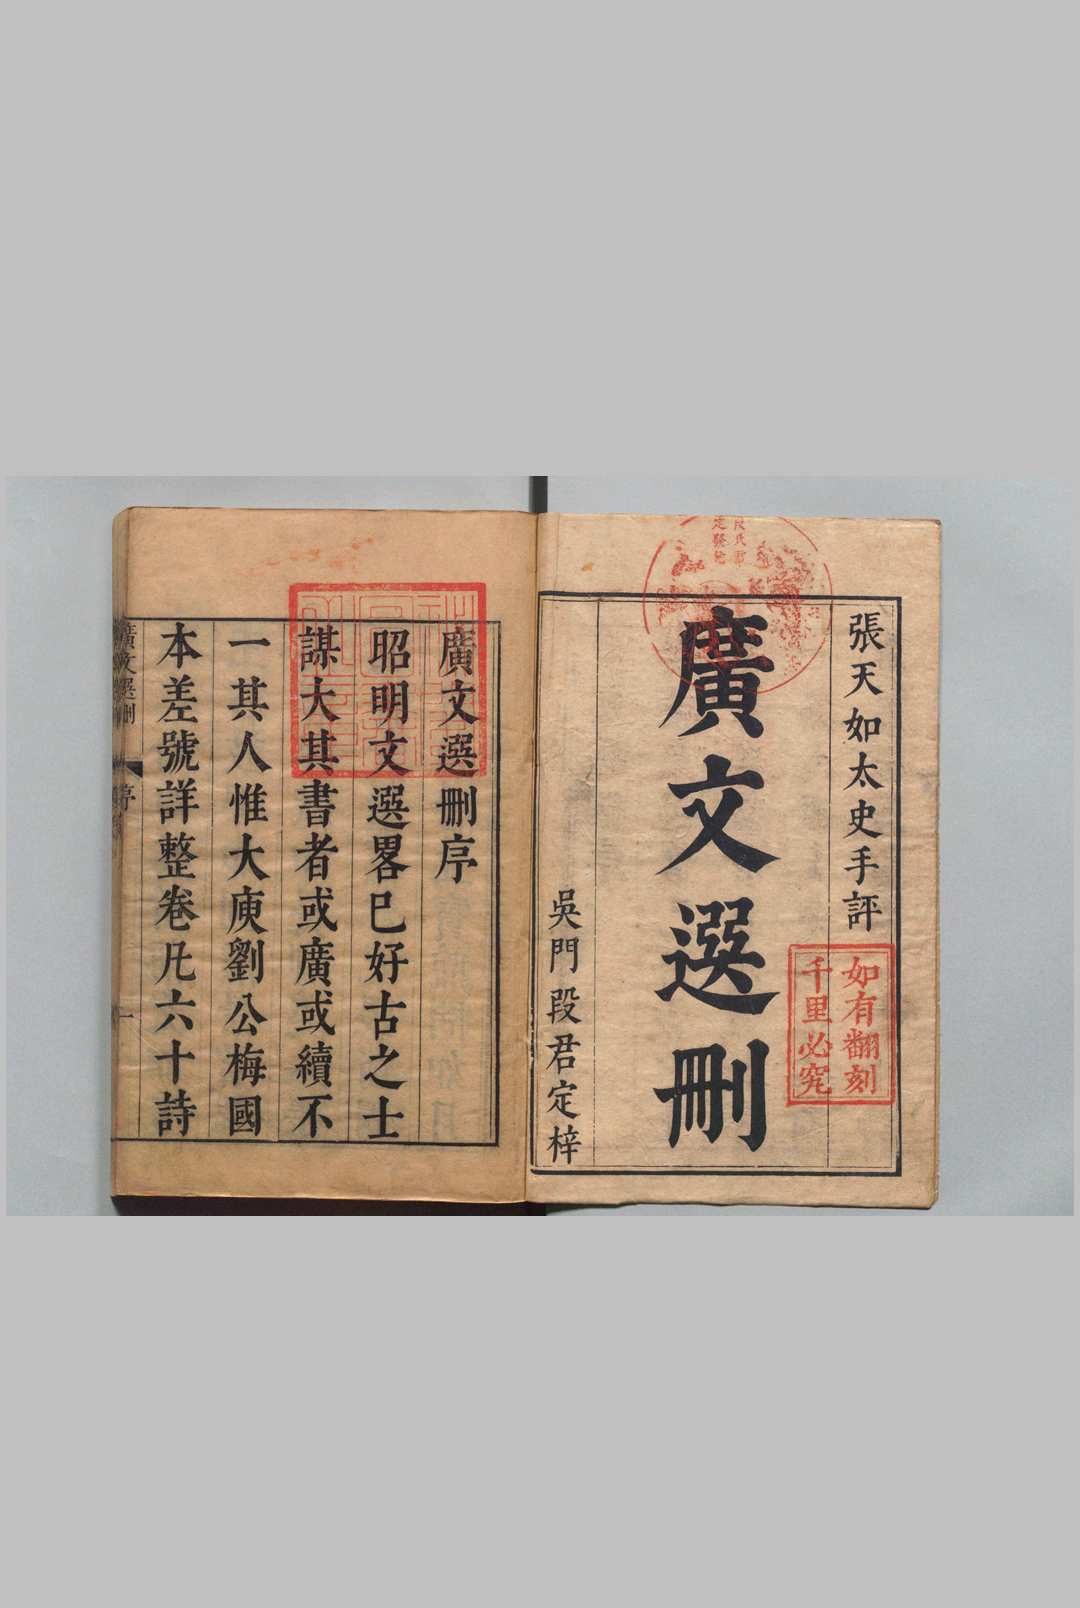 張天如太史手評
廣文選刪
吳門段君定梓
如有翻刻
千里必究
廣文選刪序
昭明文選畧巳好古之士
謀大其書者或廣或續不
一其人惟大庾劉公梅國
本差號詳整卷凡六十詩
廣文選刪
序
一